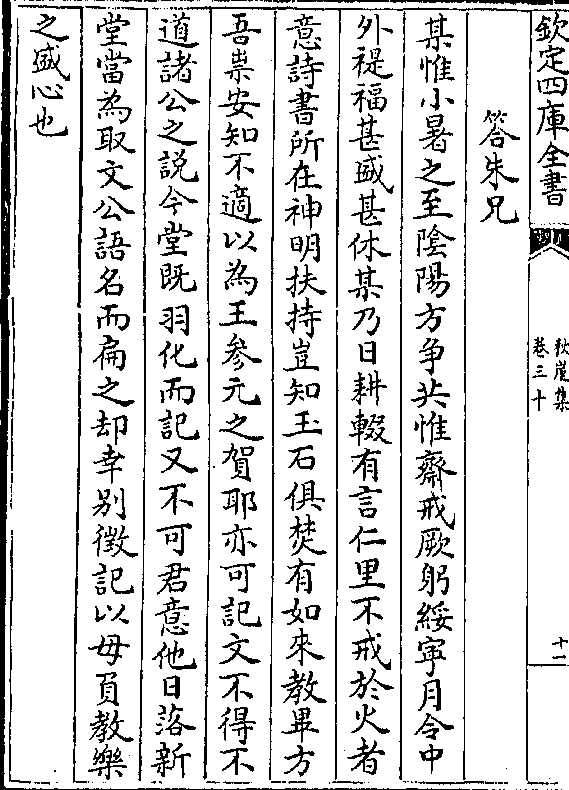 欽定四庫全書
秋崖集
卷三十
十一
答朱兄
某惟小暑之至陰陽方争共惟齋戒厥躬綏寧月令中
外禔福甚盛甚休某乃日耕輟有言仁里不戒於火者
意詩書所在神明扶持豈知玉石俱焚有如來教畢方
吾祟安知不適以為王參元之賀耶亦可記文不得不
道諸公之説今堂既羽化而記又不可君意他日落新
堂當為取文公語名而扁之却幸别徴記以毋負教樂
之盛心也